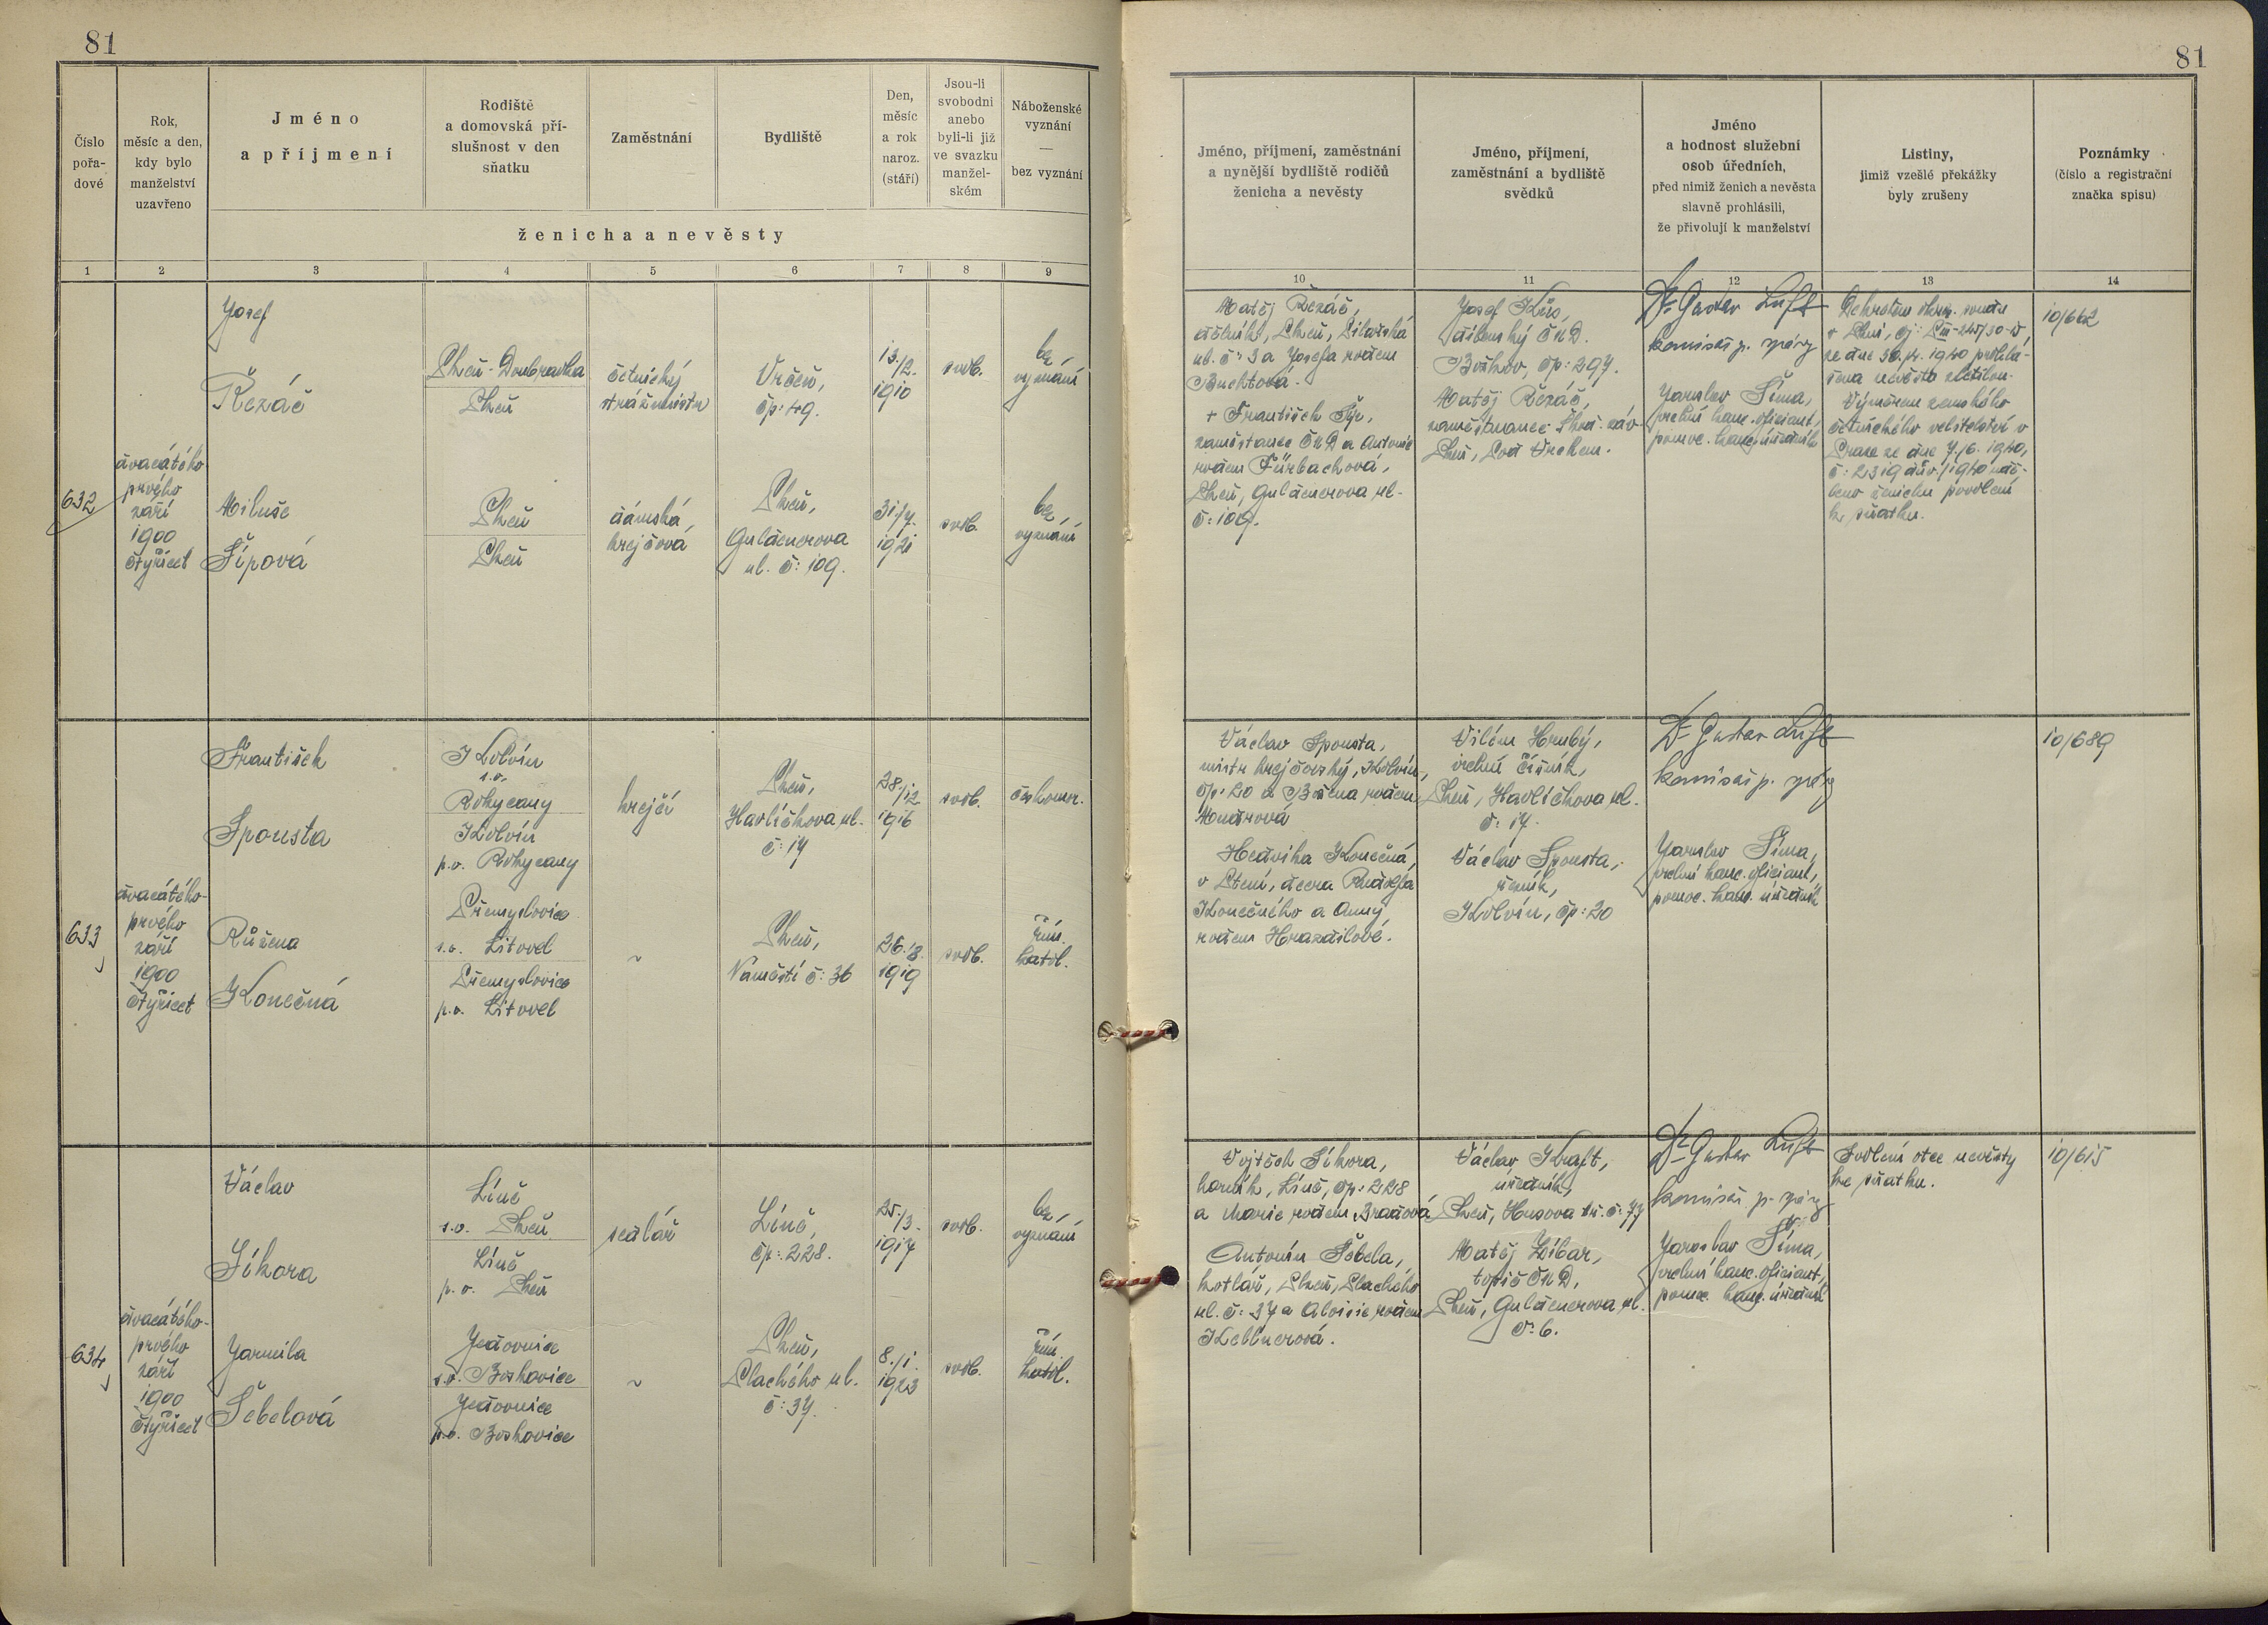 81
81
Číslo
pořa-
dové
Rok,
měsíc a den,
kdy bylo
manželství
uzavřeno
Jméno
a příjmení
Rodiště
a domovská pří-
slušnost v den
sňatku
Zaměstnání
Bydliště
Den,
měsíc
a rok
naroz.
(stáří)
Jsou-li
svobodni
anebo
byli-li již
ve svazku
manžel-
ském
Náboženské
vyznání
—
bez vyznání
ženicha a nevěsty
1 2 3 4 5 6 7 8 9
Jméno, příjmení, zaměstnání
a nynější bydliště rodičů
ženicha a nevěsty
Jméno, příjmení,
zaměstnání a bydliště
svědků
Jméno
a hodnost služební
osob úředních,
před nimiž ženich a nevěsta
slavně prohlásili,
že přivolují k manželství
Listiny,
jimiž vzešlé překážky
byly zrušeny
Poznámky
(číslo a registrační
značka spisu)
10 11 12 13 14
632
dvacátého
prvého
září
1900
čtyřicet
Josef
Řezáč
Plzeň-Doubravka
Plzeň
četnický
strážmistr
Vrčeň,
čp: 49.
13./2.
1910
svob.
bez
vyznání
Miluše
Šípová
Plzeň
Plzeň
dámská
krejčová
Plzeň,
Guldenerova
ul. č: 109.
31./7.
1921
svob.
bez
vyznání
Matěj Řezáč,
dělník, Plzeň,
ul. č: 3 a Josefa rodem
Buchtová.
+ František Šíp,
zaměstnanec ČMD a Antonie
rodem Fürbachová,
Plzeň, Guldenerova ul.
č: 109.
Josef
dílenský ČMD.
Božkov, čp: 297.
Matěj Řezáč,
zaměstnanec Škod. záv.
Plzeň, Pod Vrchem.
Dr Gustav Luft
komisař p. správy
Jaroslav Šíma,
vrchní kanc. oficiant,
pomoc. kanc. úředník
ze dne 30./4. 1940 prohlá-
šena nevěsta zletilou.
Výnosem zemského
četnického velitelství v
Praze ze dne 7./6. 1940,
č: 2319 děleno ženichu povolení
k sňatku.
10/662
633
dvacátého-
prvého
září
1900
čtyřicet
František
Spousta
Kolvín
s.o.
Rokycany
Kolvín
p.o. Rokycany
krejčí
Plzeň,
Havlíčkova ul.
č: 17
28./12.
1916
svob.
českomor.
Růžena
Konečná
Přemyslovice
s.o. Litovel
Přemyslovice
p.o. Litovel
~
Plzeň,
Náměstí č: 36
26./8.
1919
svob.
řím.
katol.
Václav Spousta,
mistr krejčovský, Kolvín,
čp: 20 a Božena rodem
Hedvika Konečná,
v Plzni, dcera Rudolfa
Konečného a Anny,
rodem Hrazdilové.
Vilém Hrubý,
vrchní číšník,
Plzeň, Havlíčkova ul.
č: 17.
Václav Spousta,
řezník,
Kolvín, čp: 20
Dr Gustav Luft
komisař p. správy
Jaroslav Šíma,
vrchní kanc. oficiant,
pomoc. kanc. úředník
10/689
634
dvacátého-
prvého
září
1900
čtyřicet
Václav
Síkora
Líně
s.o. Plzeň
Líně
p.o. Plzeň
sedlář
Líně,
čp: 228.
25./3.
1917
svob.
bez
vyznání
Jarmila
Šebelová
Jedovnice
s.o. Boskovice
Jedovnice
p.o. Boskovice
~
Plzeň,
Plachého ul.
č: 37.
8./1.
1923
svob.
řím.
katol.
Vojtěch Síkora,
horník, Líně, čp: 228
a Marie rodem Bradová
Antonín Šebela,
kotlář, Plzeň, Plachého
ul. č: 37 a Aloisie rodem
Kellnerová.
Václav Kraft,
úředník,
Plzeň, Husova tř. č: 77
Matěj Líbar,
topič ČMD,
Plzeň, Guldenerova ul.
č: 6.
Dr Gustav Luft
komisař p. správy
Jaroslav Šíma,
vrchní kanc. oficiant,
pomoc. kanc. úředník
Svolení otce nevěsty
ke sňatku.
10/615